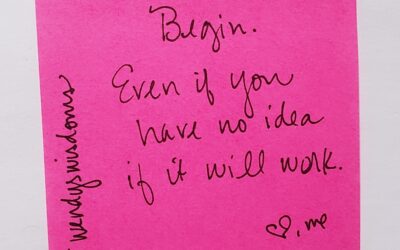 Begin.
Even if you
have no idea
if it will work.
♡, me
wendyswisdoms